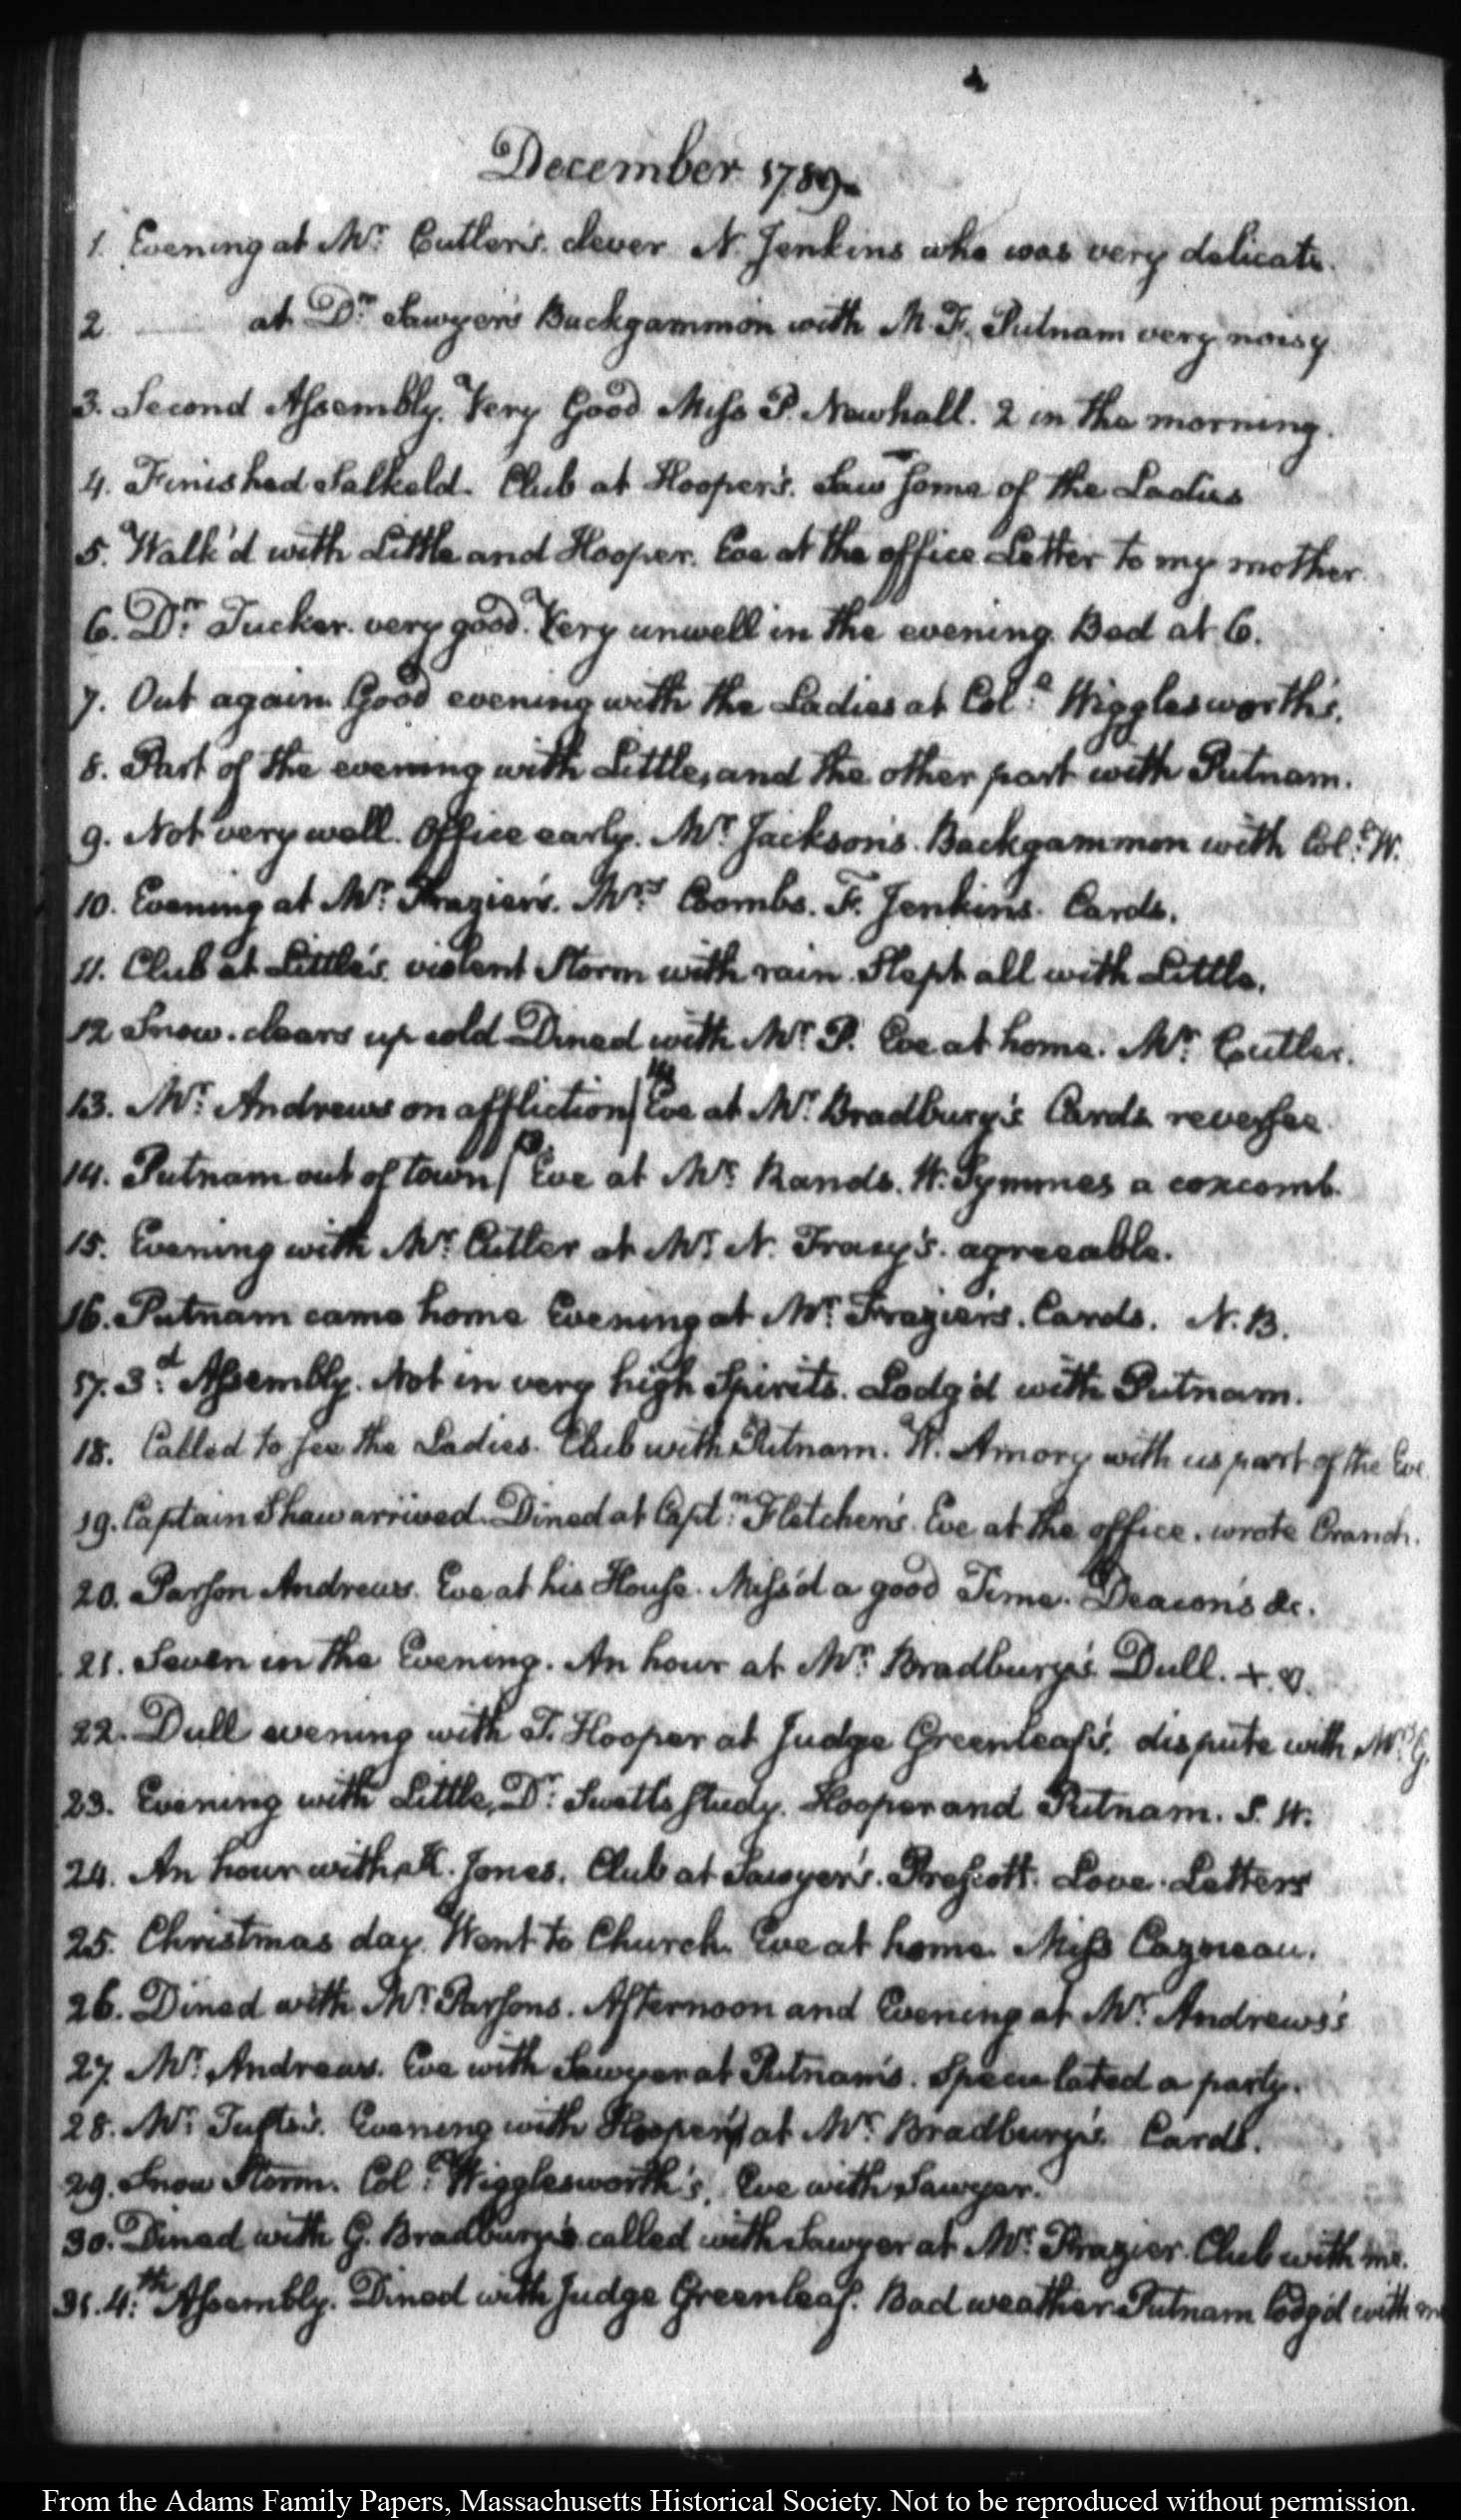 December 1789.
1. Evening at Mr. Cutler's. clever N. Jenkins who was very delicate.
2 —— at Dr. Sawyer's Backgammon with M. F. Putnam very noisy
3. Second Assembly. Very Good Miss P. Newhall. 2 in the morning.
4. Finished Salkeld. Club at Hooper's. Saw some of the Ladies
5. Walk'd with Little and Hooper. Eve at the office Letter to my mother
6. Dr. Tucker. very good. Very unwell in the evening. Bed at 6.
7. Out again. Good evening with the Ladies at Col. Wigglesworth's.
8. Part of the evening with Little, and the other part with Putnam.
9. Not very well. Office early. Mr. Jackson's. Backgammon with Col. W.
10. Evening at Mr. Frazier's. Mrs. Coombs. F. Jenkins. Cards.
11. Club at Little's. violent Storm with rain. Slept all with Little.
12 Snow. clears up cold Dined with Mr. P. Eve at home. Mr. Cutler.
13. Mr. Andrews on affliction/ 14 Eve at Mr. Bradbury's Cards reversee.
14. Putnam out of town/ 13. Eve at Mr. Rands. W. Symmes a coxcomb.
15. Evening with Mr. Cutler at Mr. N. Tracy's. agreeable.
16. Putnam came home Evening at Mr. Frazier's. Cards. N.B.
17. 3d. Assembly. Not in very high Spirits. Lodg'd with Putnam.
18. Called to see the Ladies. Club with Putnam. W. Amory with us part of the Eve.
19. Captain Shaw arrived. Dined at Captn. Fletcher's. Eve at the office. wrote Cranch.
20. Parson Andrews. Eve at his House. Miss'd a good Time. Deacon's &c.
21. Seven in the Evening. An hour at Mr. Bradbury's Dull. +.
22. Dull evening with T. Hooper at Judge Greenleaf's. dispute with Mr. G.
23. Evening with Little, Dr. Swett's study. Hooper and Putnam. S. W.
24. An hour with Jones. Club at Sawyer's. Prescott. Love. Letters
25. Christmas day. Went to Church. Eve at home. Miss Cazneau.
26. Dined with Mr. Parsons. Afternoon and Evening at Mr. Andrews's
27. Mr. Andrews. Eve with Sawyer at Putnam's. Speculated a party.
28. Mr. Tufts's. Evening with Hooper at Mr. Bradbury's. Cards.
29. Snow Storm. Col. Wigglesworth's. Eve with Sawyer.
30. Dined with G. Bradbury's called with Sawyer at Mr. Frazier. Club with me.
31. 4th. Assembly. Dined with Judge Greenleaf. Bad weather. Putnam lodg'd with
From the Adams Family Papers, Massachusetts Historical Society. Not to be reproduced without permission.